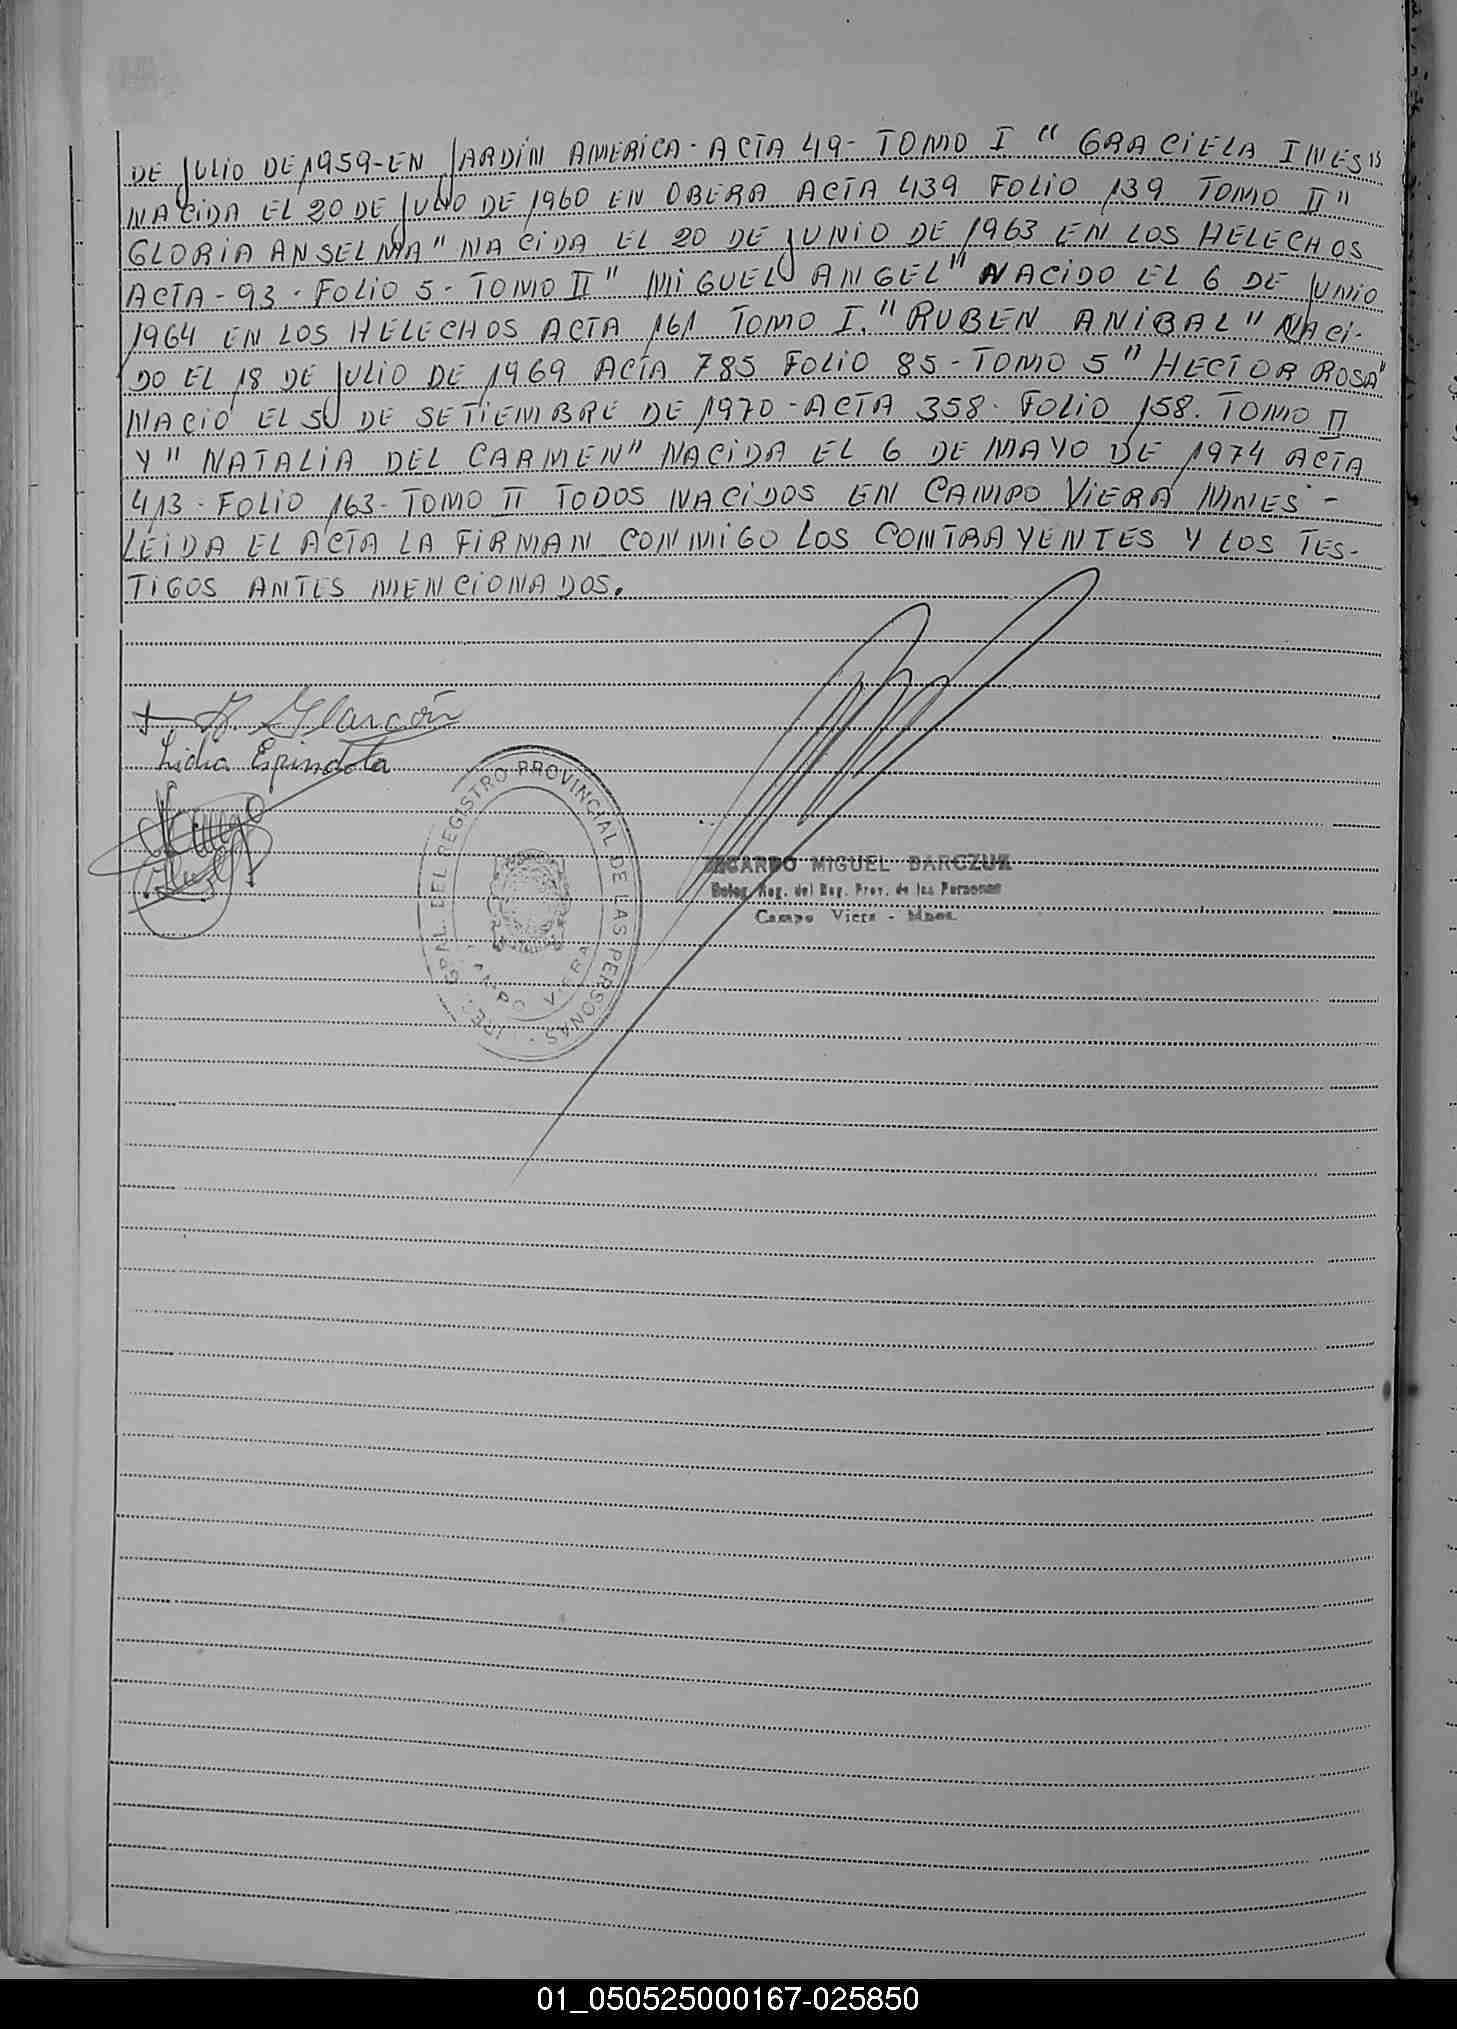 DE JULIO DE 1959-EN JARDÍN AMERICA- ACTA 49- TOMO I "GRACIELA INES"
NACIDA EL 20 DE JULIO DE 1960 EN OBERA ACTA 439 FOLIO 139 TOMO II"
GLORIA ANSELMA" NACIDA EL 20 DE JUNIO DE 1963 EN LOS HELECHOS
ACTA-93-FOLIO 5-TOMO II" MIGUEL ANGEL" NACIDO EL 6 DE JUNIO
1964 EN LOS HELECHOS ACTA 161 TOMO I."RUBEN ANIBAL" NACI-
DO EL 18 DE JULIO DE 1969 ACTA 785 FOLIO 85-TOMO 5" HECTOR ROSA"
NACIÓ EL DE SETIEMBRE DE 1970-ACTA 358-FOLIO 158. TOMO II
Y" NATALIA DEL CARMEN" NACIDA EL 6 DE MAYO DE 1974 ACTA
413-FOLIO 163-TOMO II TODOS NACIDOS EN CAMPO VIERA MNES-
LEIDA EL ACTA LA FIRMAN CONMIGO LOS CONTRAYENTES Y LOS TES-
TIGOS ANTES MENCIONADOS.
Alarcón
Lidia Espindola
GRAL DEL REGISTRO PROVINCIAL DE LAS PERSONAS
CAMPO VIERA
RICARDO MIGUEL BARCZUK
Deleg. Reg. del Reg. Prov. de las Personas
Campo Viera - Mnes.
01_050525000167-025850